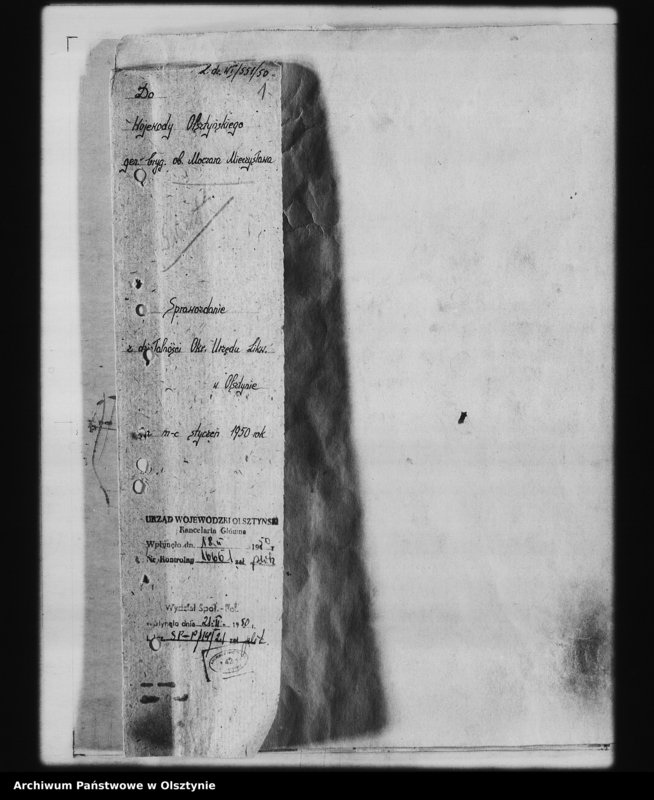 L. dz. VI/551/50
1
Do
Wojewody Olsztyńskiego
gen. bryg. ob. Moczara Mieczysława
Sprawozdanie
z działalności Okr. Urzędu Likw.
w Olsztynie
za m-c styczeń 1950 rok
URZĄD WOJEWÓDZKI OLSZTYŃSKI
Kancelaria Główna
Wpłynęło dn. 18.II 1950 r.
Nr. Kontrolny zał. plik
Wydział Społ.-Pol.
Wpłynęło dnia 21.II. 1950 r.
zał. plik
Archiwum Państwowe w Olsztynie